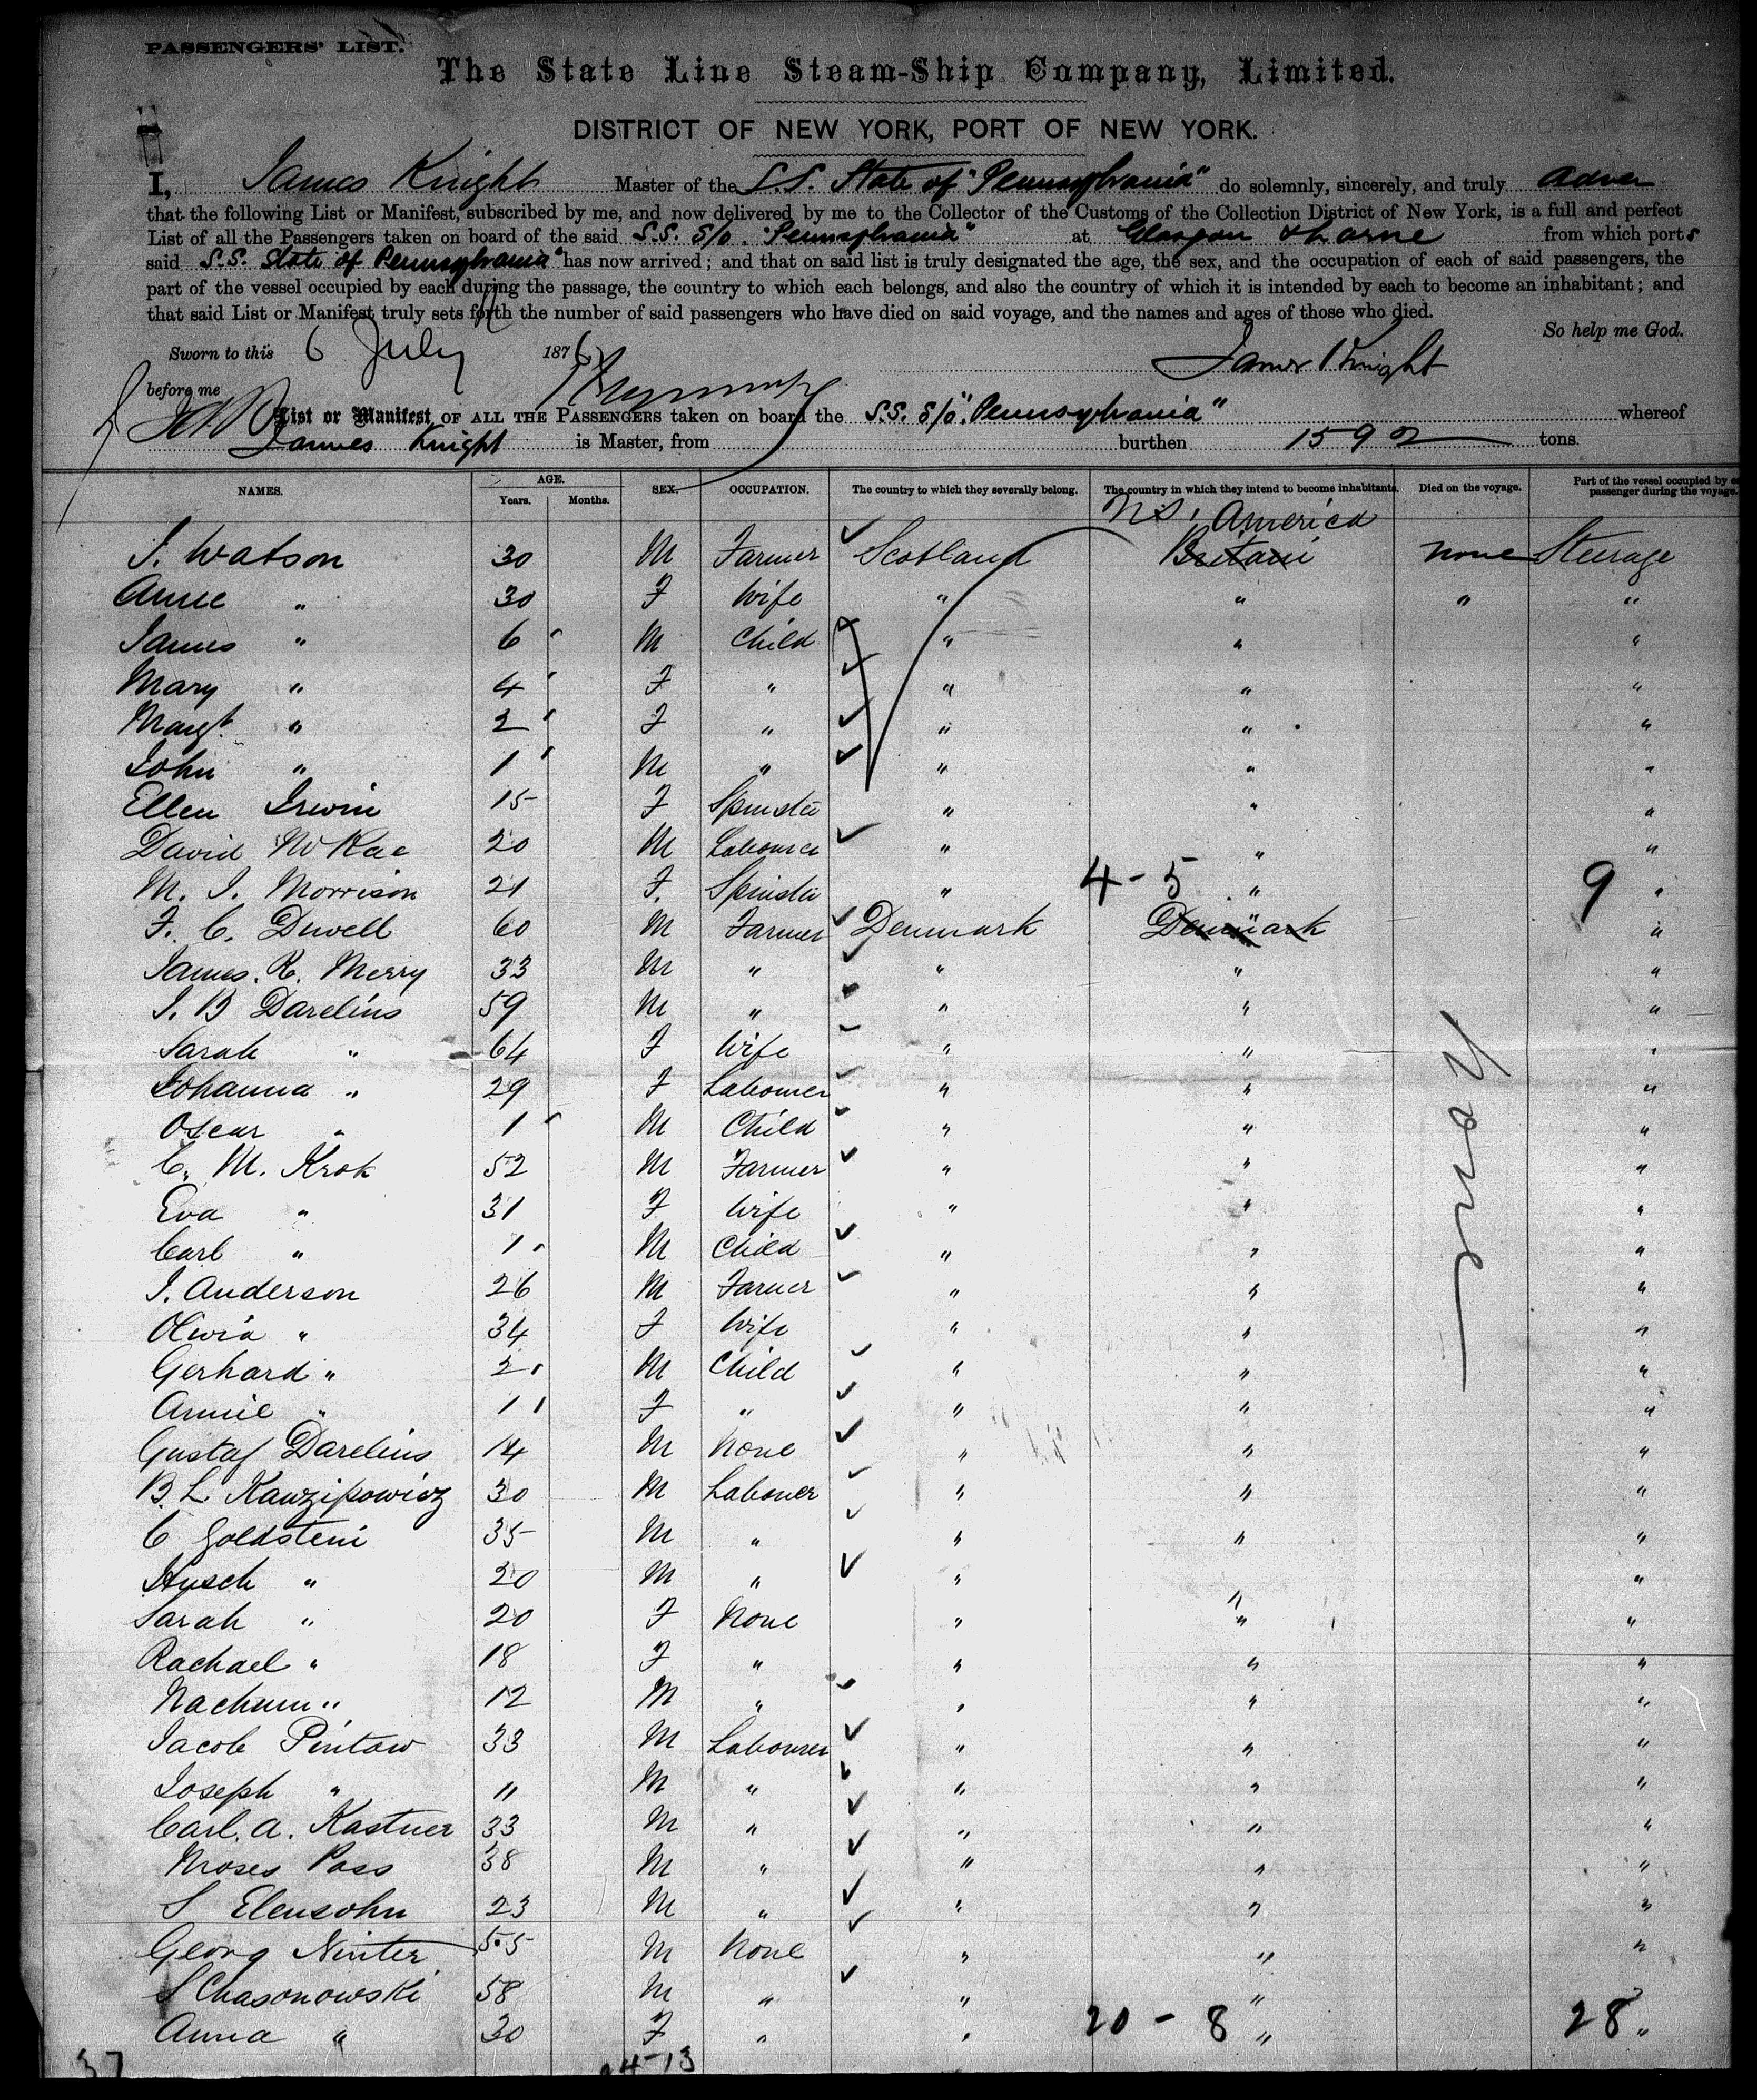 PASSENGERS' LIST.
The State Line Steam-Ship Company, Limited.
DISTRICT OF NEW YORK, PORT OF NEW YORK.
I, James Knight Master of the S.S. State of "Pennsylvania" do solemnly, sincerely, and truly
that the following List or Manifest, subscribed by me, and now delivered by me to the Collector of the Customs of the Collection District of New York, is a full and perfect
List of all the Passengers taken on board of the said S.S. S/o. "Pennsylvania" at Glasgow & Larne from which ports
said S.S. State of Pennsylvania" has now arrived; and that on said list is truly designated the age, the sex, and the occupation of each of said passengers, the
part of the vessel occupied by each during the passage, the country to which each belongs, and also the country of which it is intended by each to become an inhabitant; and
that said List or Manifest truly sets forth the number of said passengers who have died on said voyage, and the names and ages of those who died.
So help me God.
Sworn to this 6 July 1876 James Knight
before me
List or Manifest OF ALL THE PASSENGERS taken on board the S.S. S/o "Pennsylvania" whereof
James Knight is Master, from burthen 1592 tons.
NAMES. AGE. Years. Months. SEX. OCCUPATION. The country to which they severally belong. The country in which they intend to become inhabitants. Died on the voyage. Part of the vessel occupied by passenger during the voyage.
America
J. Watson 30 M Farmer Scotland none Steerage
Annie " 30 F Wife " " " "
James " 6 M Child " " "
Mary " 4 F " " " "
Margt. " 2 F " " " "
John " 1 M " " " "
Ellen Irwin 15 F Spinster " " "
David McKae 20 M Labourer " " "
M. J. Morrison 21 F. Spinster " 4-5 " 9 "
F. C. Dewell 60 M Farmer Denmark Denmark "
James. R. Merry 33 M " " " "
J. B Darelius 59 M " " " "
Sarah " 64 F Wife " " "
Johanna " 29 F Labourer " " "
Oscar " 1 M Child " " "
C. M. Krok 52 M Farmer " " "
None
Eva " 31 F Wife " " "
Carl " 1 M Child " " "
J. Anderson 26 M Farmer " " "
Olivia " 34 F Wife " " "
Gerhard " 2 M Child " " "
Annie " 1 F " " " "
Gustaf Darelius 14 M None " " "
B. L. Kauzipowicz 30 M Labourer " " "
C Goldstein 35 M " " " "
Husch " 20 M " " "
Sarah " 20 F None " " "
Rachael " 18 F " " " "
Nachum " 12 M " " " "
Jacob Pintow 33 M Labourer " " "
Joseph " 11 M " " " "
Carl. A. Kastner 33 M " " " "
Moses Pass 38 M " " " "
S Elensohn 23 M " " " "
Georg Ninter 55 M None " " "
S Chasonowski 58 M " " " "
Anna " 30 F " " 20 - 8 " 28 "
37 24-13